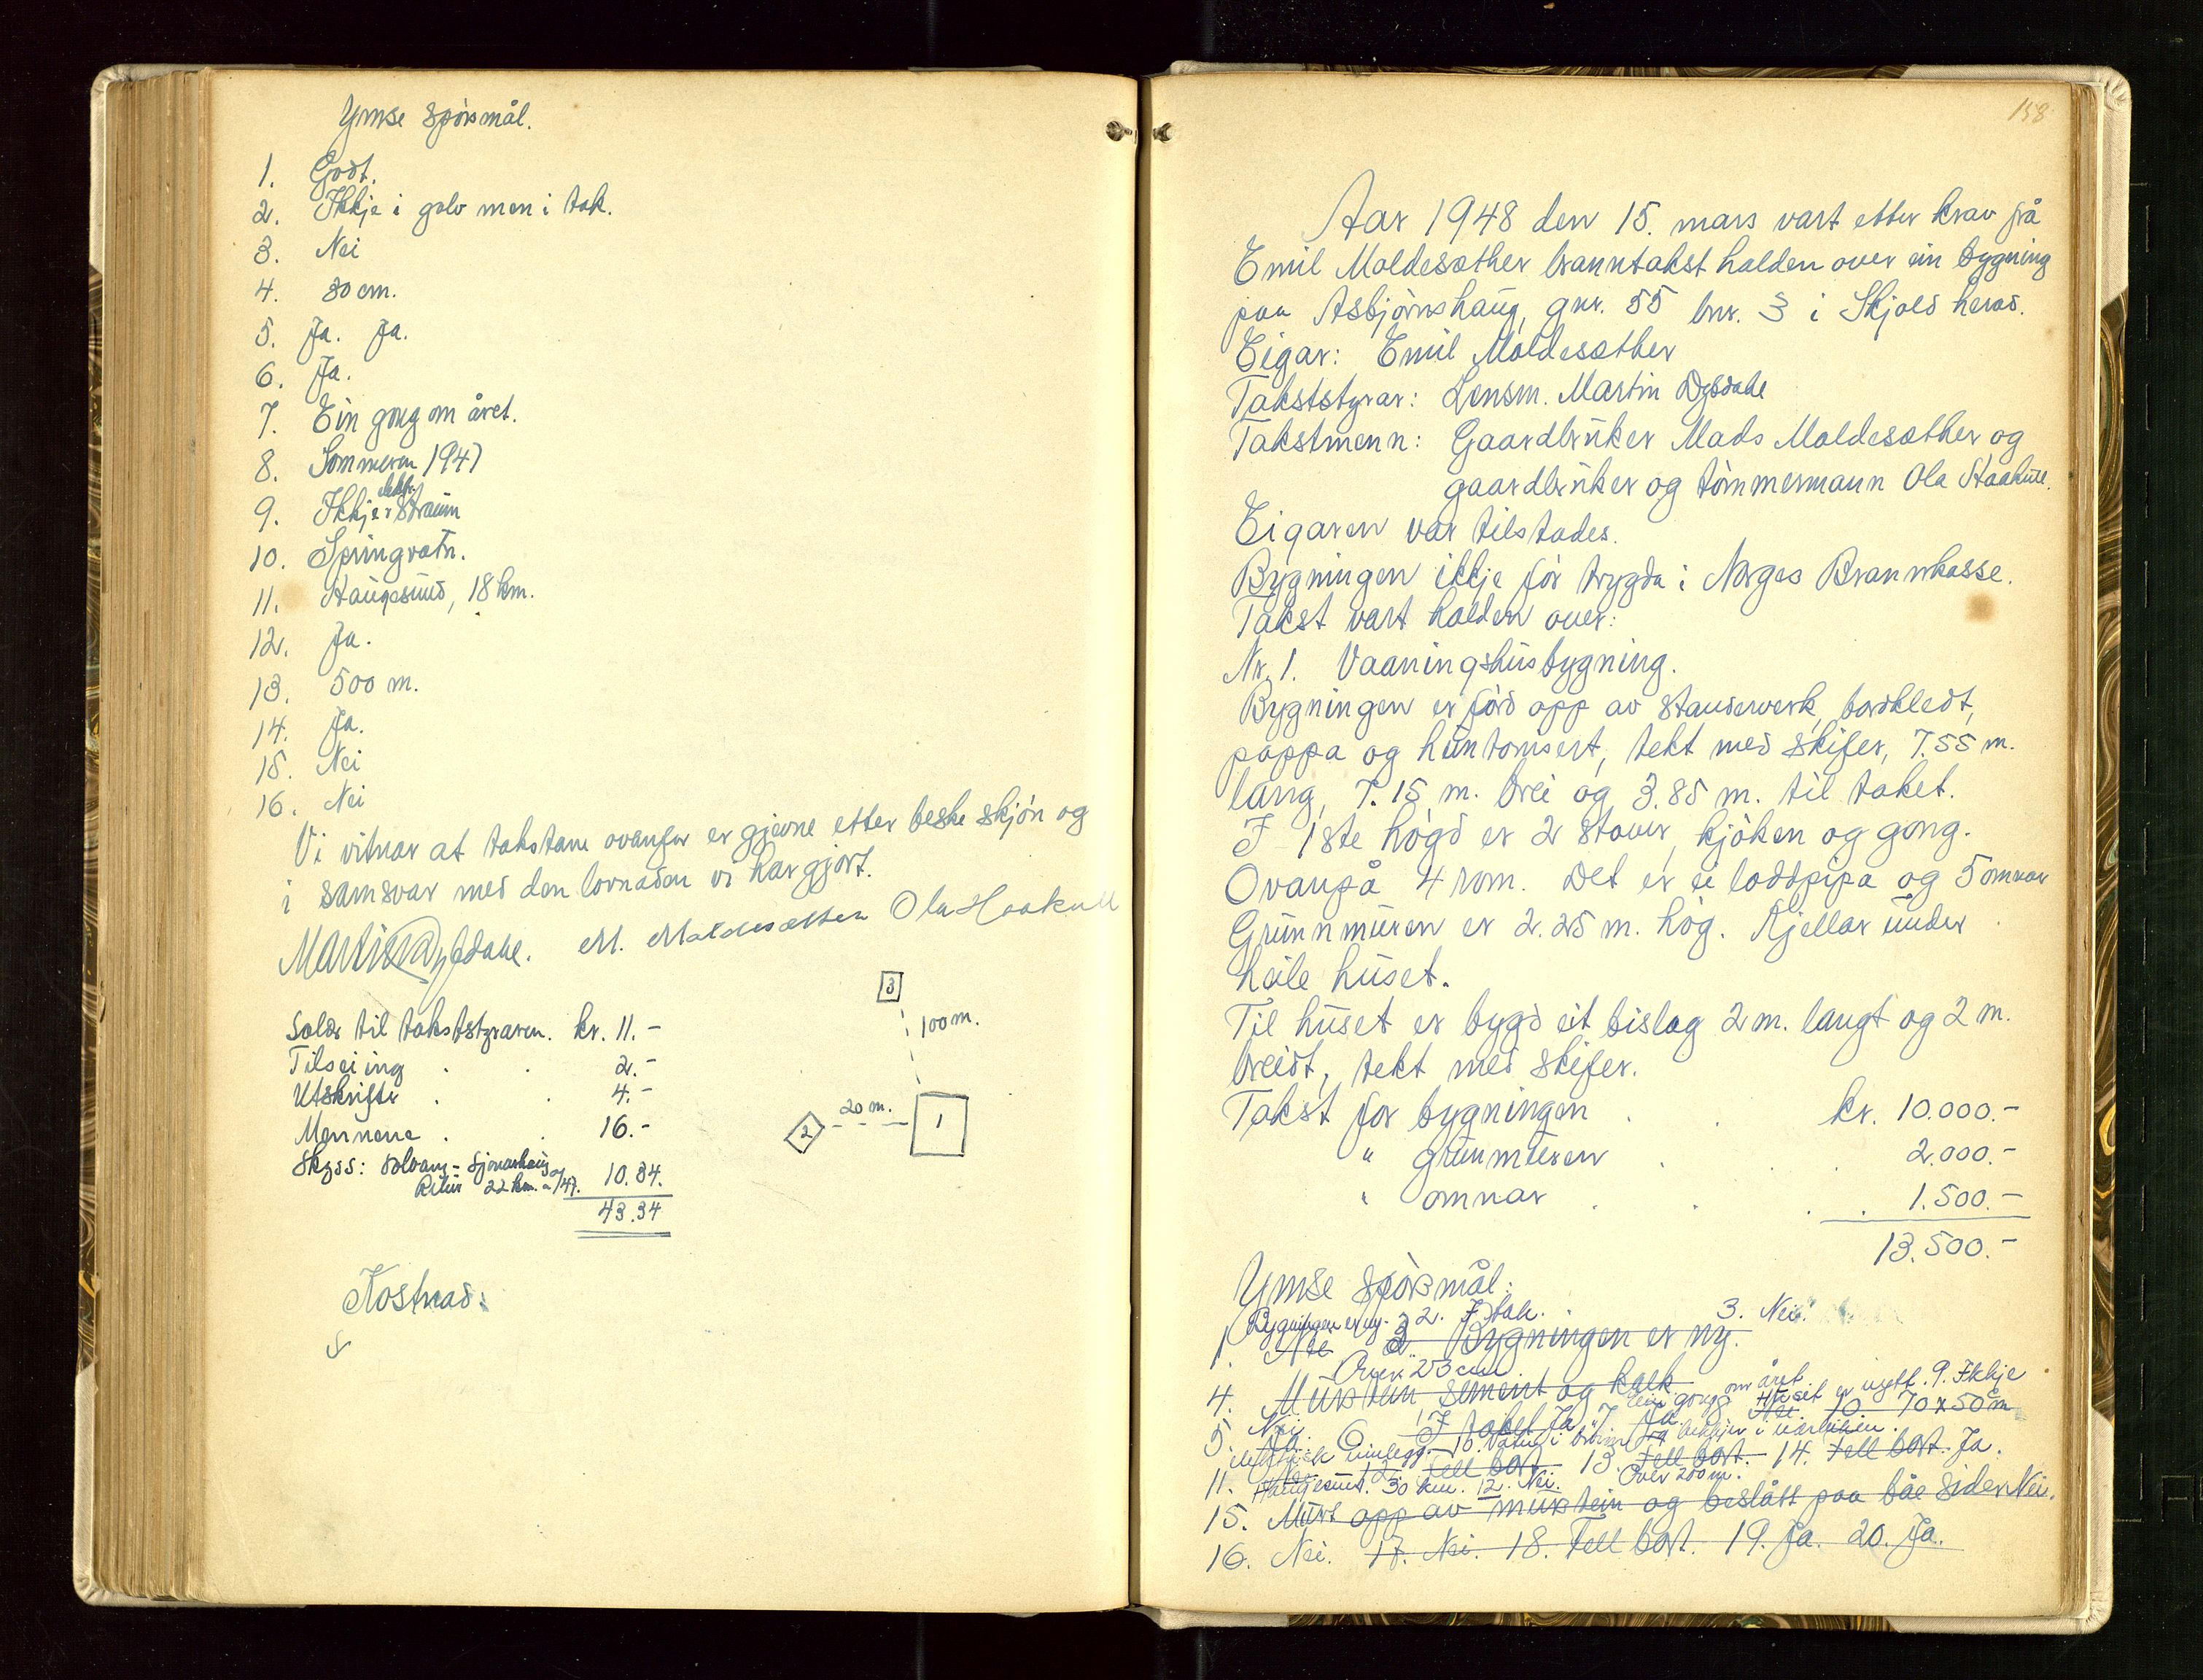 Ymse spörsmål.
1. Godt.
2. Ikkje i golv men i tak.
3. Nei
4. 80 cm.
5. Ja. Ja.
6. Ja.
7. Ein gong om året.
8. Sommeren 1947
9. Ikkje elektr. straum
10. Springvatn.
11. Haugesund, 18 km.
12. Ja.
13. 500 m.
14. Ja.
15. Nei
16. Nei
Vi vitnar at takstane ovanfor er gjevne etter beste skjön og
i samsvar med den lovnaden vi har gjort.
Martin Dybdahl. M. Maldesæther Ola Haakull
3
100 m.
20 m.
2
1
Løn til takststyraren. kr. 11.-
Tilseiing . . 2.-
Utskrifter . . 4.-
Mennene . . 16.-
Skyss: Solvang - Sjonarhaug og
Retur 22 km. a /47. 10.34.
43.34
Kostnad:
158
Aar 1948 den 15. mars vart etter krav frå
Emil Moldesæther branntakst halden over ein bygning
paa Asbjörnshaug, gnr. 55 bnr. 3 i Skjold herad.
Eigar: Emil Moldesæther
Takststyrar: Lensm. Martin Dybdahl
Takstmenn: Gaardbruker Mads Moldesæther og
gaardbruker og tömmermann Ola Haakull.
Eigaren var tilstades.
Bygningen ikkje för trygda i Norges Brannkasse.
Takst vart halden over:
Nr. 1. Vaaningshusbygning.
Bygningen er förd opp av stenderverk, bordkledt,
pappa og huntonisert, tekt med skifer, 7.55 m.
lang, 7.15 m. brei og 3.85 m. til taket.
I 1ste högd er 2 stover, kjöken og gong.
Ovanpå 4 rom. Det er ei loddpipa og 5 omnar
Grunnmuren er 2.25 m. hög. Kjellar under
heile huset.
Til huset er bygd eit bislag 2 m. langt og 2 m.
breidt, tekt med skifer.
Takst for bygningen . . kr. 10.000.-
" grunnmuren . . 2.000.-
" omnar . . . . 1.500.-
13.500.-
Ymse spörsmål:
Bygningen er ny. 2. I tak. 3. Nei.
1. Nei 2. Bygningen er ny.
Over 23 cm
4. Murstein sement og kalk
Ein gong om året. Huset er nytt. 9. Ikkje
5. Nei. Ja 6. I taket Ja 7. Ja. Nei. 10 70 x 50 m
elektrisk innlegg. 10. Vatn i brönn og bekkjer i nærleiken.
11. Haugesund. 30 km. 12. Nei. 12. Fell bort. 13. Fell bort. Over 200 m. 14. Fell bort. Ja.
15. Murt opp av murstein og beslått paa båe sider Nei.
16. Nei. 17. Nei. 18. Fell bort. 19. Ja. 20. Ja.